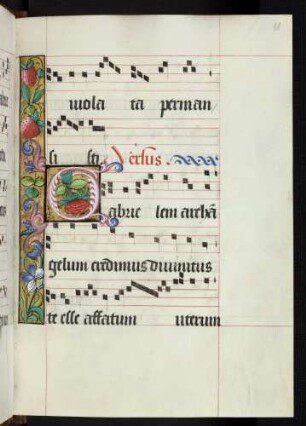 uiola ta perman
si sti Versus.
Gabrie lem archā
gelum credimus diuinitus
te esse affatum uterum